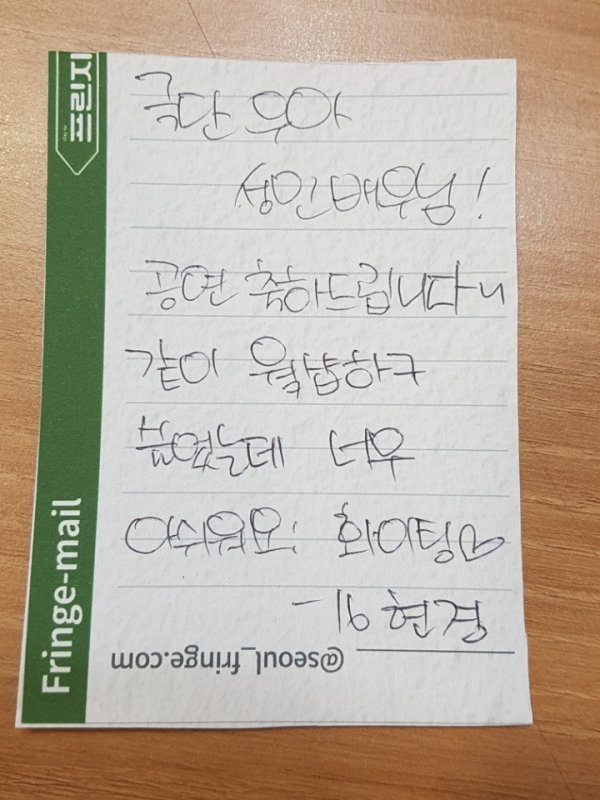 극단 우아
성인 배우님!
공연 축하드립니다
같이 워크샵하구
싶었는데 너무
아쉬워요! 화이팅♡
-16 현경
@seoul_fringe.com
Fringe-mail
프린지